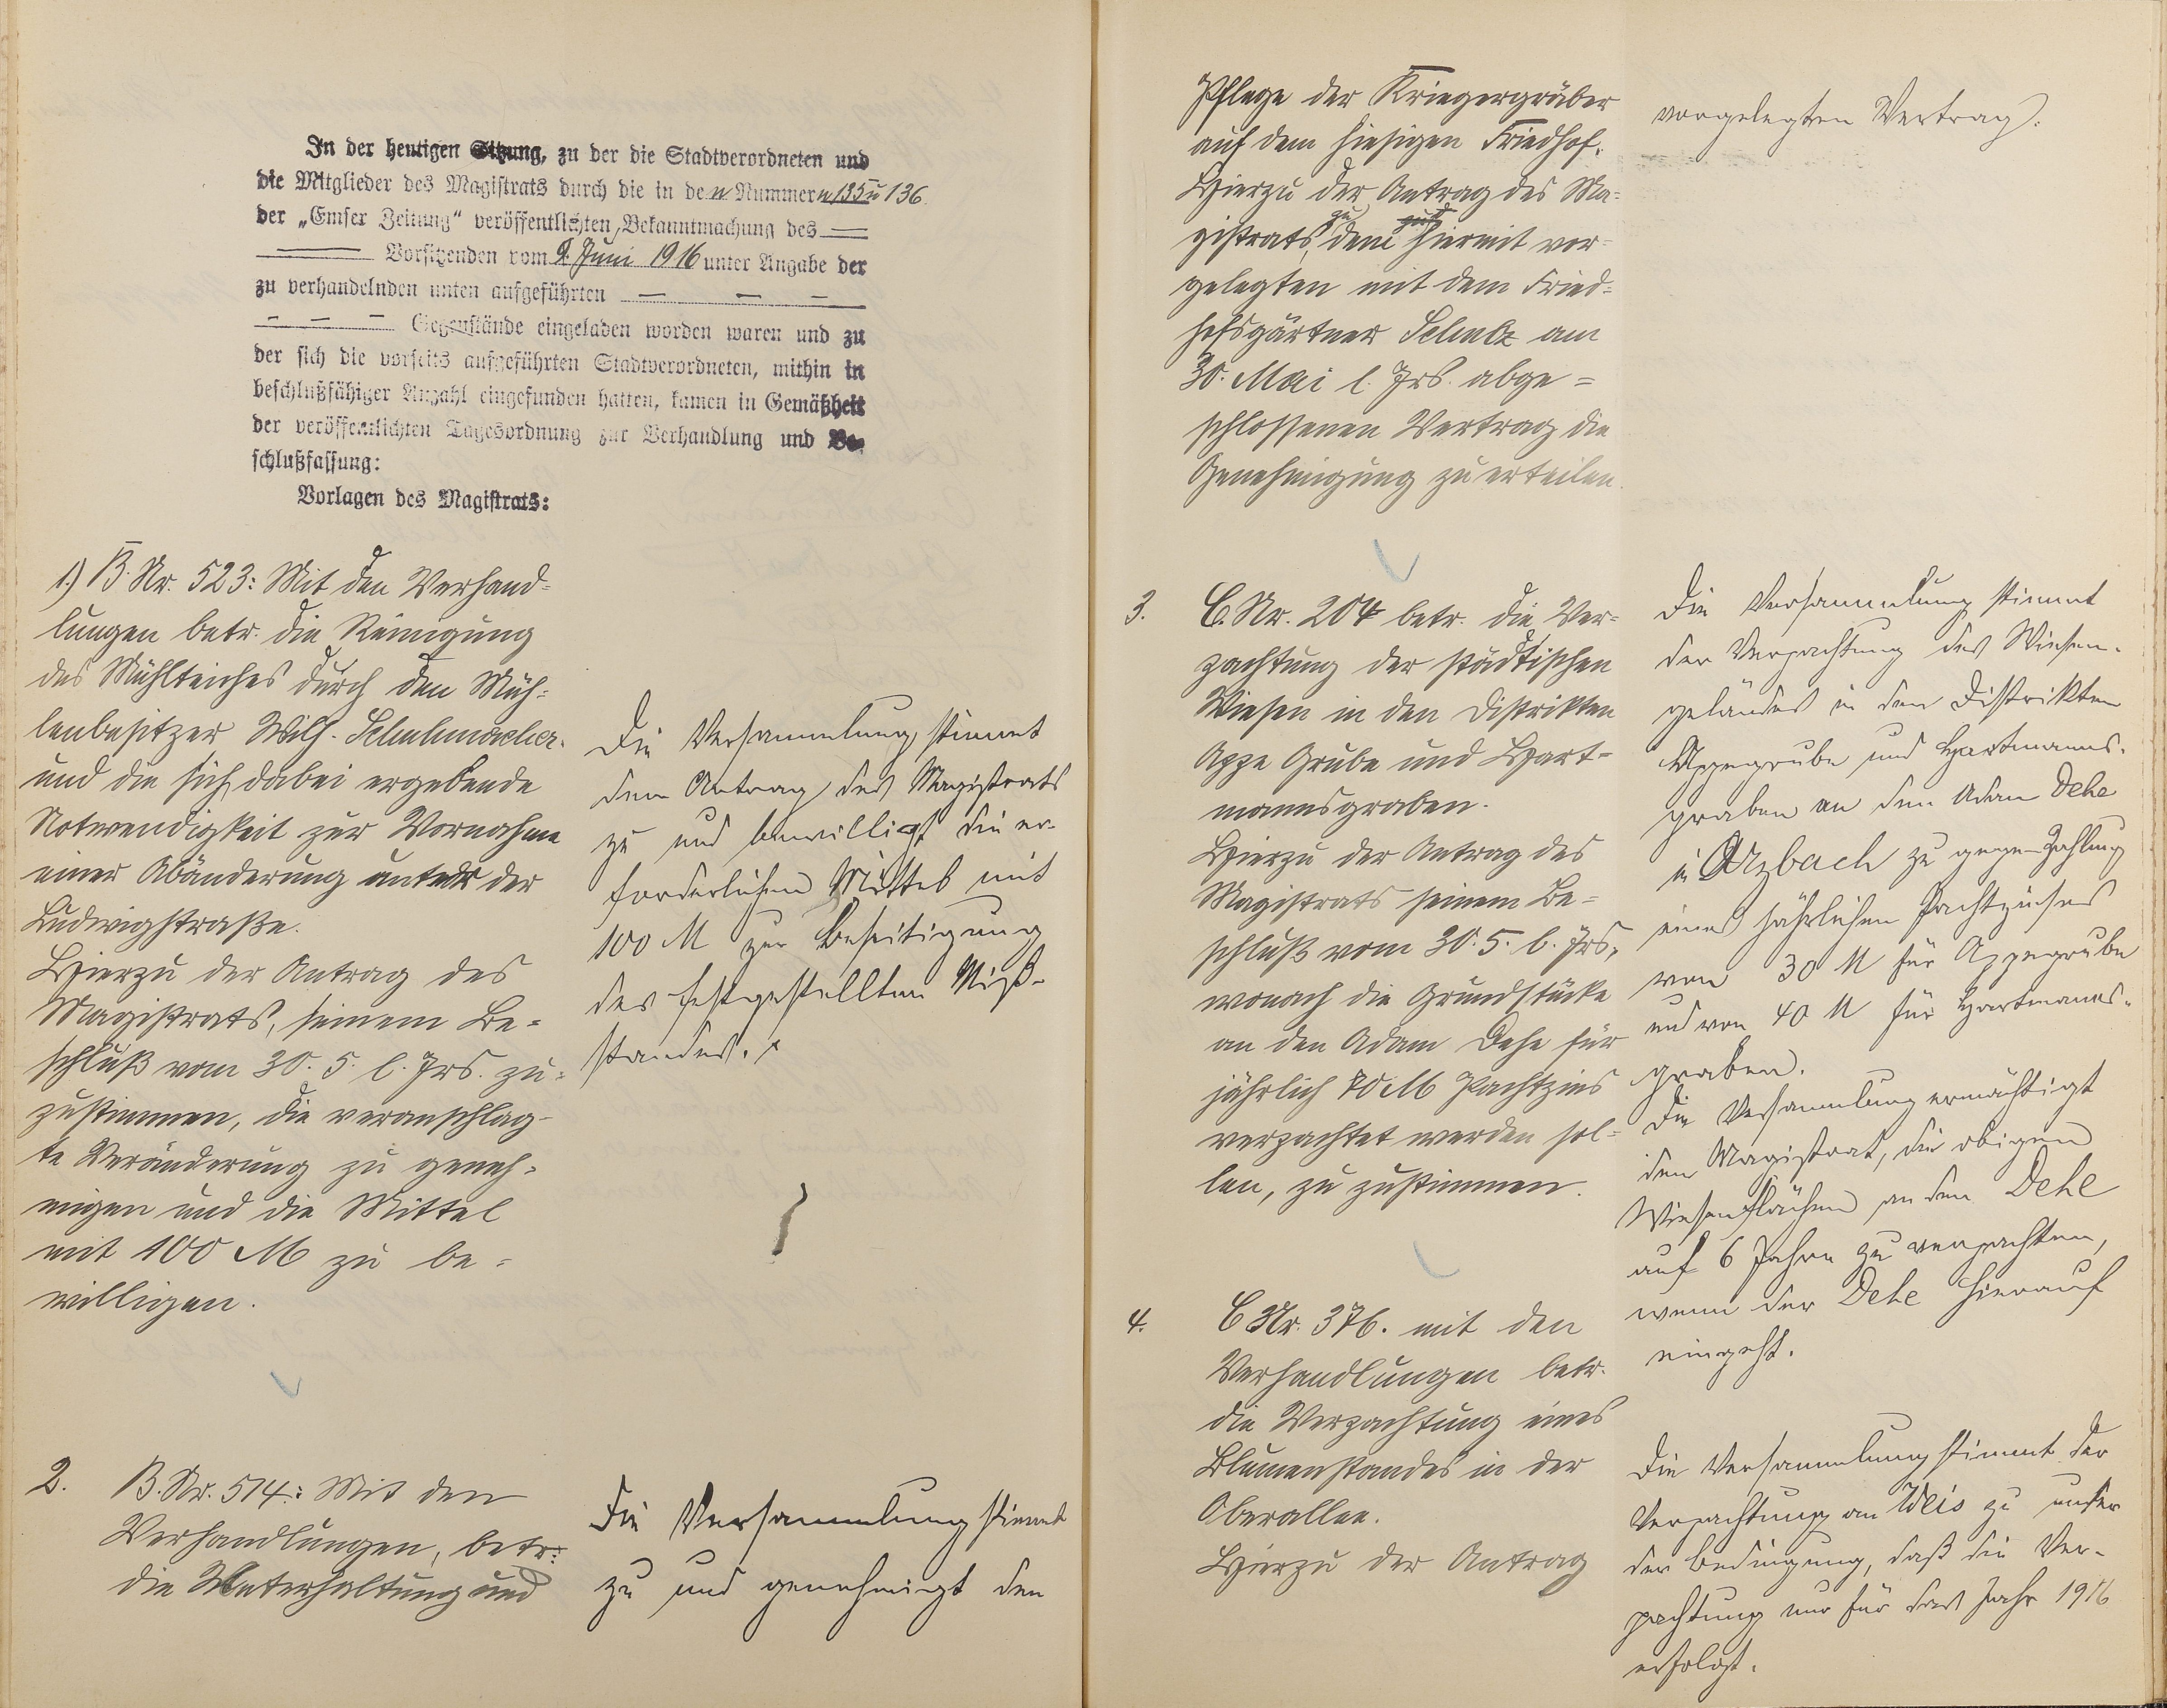 In der heutigen Sitzung, zu der die Stadtverordneten und
die Mitglieder des Magistrats durch die in den Nummern 135 u 136
der „Emser Zeitung“ veröffentlichten Bekanntmachung des
Vorsitzenden vom 9. Juni 1916 unter Angabe der
zu verhandelnden unten aufgeführten
Gegenstände eingeladen worden waren und zu
der sich die vorseits aufgeführten Stadtverordneten, mithin in
beschlußfähiger Anzahl eingefunden hatten, kamen in Gemäßheit
der veröffentlichten Tagesordnung zur Verhandlung und Be-
schlußfassung:
Vorlagen des Magistrats:
1.) B. Nr. 523: Mit den Verhand-
lungen betr. die Reinigung
des Mühlteiches durch den Müh-
lenbesitzer Wilh. Schuhmacher
und die sich dabei ergebende
Notwendigkeit zur Vornahme
einer Abänderung unter der
Ludwigstraße.
Hierzu der Antrag des
Magistrats, seinem Be-
schluß vom 30. 5. l. Jrs. zu-
zustimmen, die veranschlag-
te Veränderung zu geneh-
migen und die Mittel
mit 100 M zu be-
willigen.
Die Versammlung stimmt
dem Antrag des Magistrats
zu und bewilligt die er-
forderlichen Mittel mit
100 M zur Beseitigung
des festgestellten Miß-
standes.
2. B. Nr. 514: Mit den
Verhandlungen, betr.
die Unterhaltung und
Die Versammlung stimmt
zu und genehmigt den
Pflege der Kriegergräber
auf dem hiesigen Friedhof.
Hierzu der Antrag des Ma-
gistrats, zu dem hiermit vor-
gelegten mit dem Fried-
hofsgärtner Schulz am
30. Mai l. Jrs. abge-
schlossenen Vertrag die
Genehmigung zu erteilen.
vorgelegten Vertrag.
3. C. Nr. 204 betr. die Ver-
pachtung der städtischen
Wiesen in den Distrikten
Appe Grube und Hart-
mannsgraben.
Hierzu der Antrag des
Magistrats seinem Be-
schluß vom 30. 5. l. Jrs,
wonach die Grundstücke
an den Adam Dehe für
jährlich 70 M Pachtzins
verpachtet werden sol-
len, zu zustimmen.
Die Versammlung stimmt
der Verpachtung des Wiesen-
geländes in den Distrikten
Appegrube und Hartmanns-
graben an den Adam Dehe
in Arzbach zu gegen Zahlung
eines jährlichen Pachtzinses
von 30 M für Appegrube
und von 40 M für Hartmanns-
graben.
Die Versammlung ermächtigt
den Magistrat, die obigen
Wiesenflächen an den Dehe
auf 6 Jahre zu verpachten,
wenn der Dehe hierauf
eingeht.
4. C Nr. 376. mit den
Verhandlungen betr.
die Verpachtung eines
Blumenstandes in der
Oberallee.
Hierzu der Antrag
Die Versammlung stimmt der
Verpachtung an Weis zu unter
der Bedingung, daß die Ver-
pachtung nur für das Jahr 1916
erfolgt.